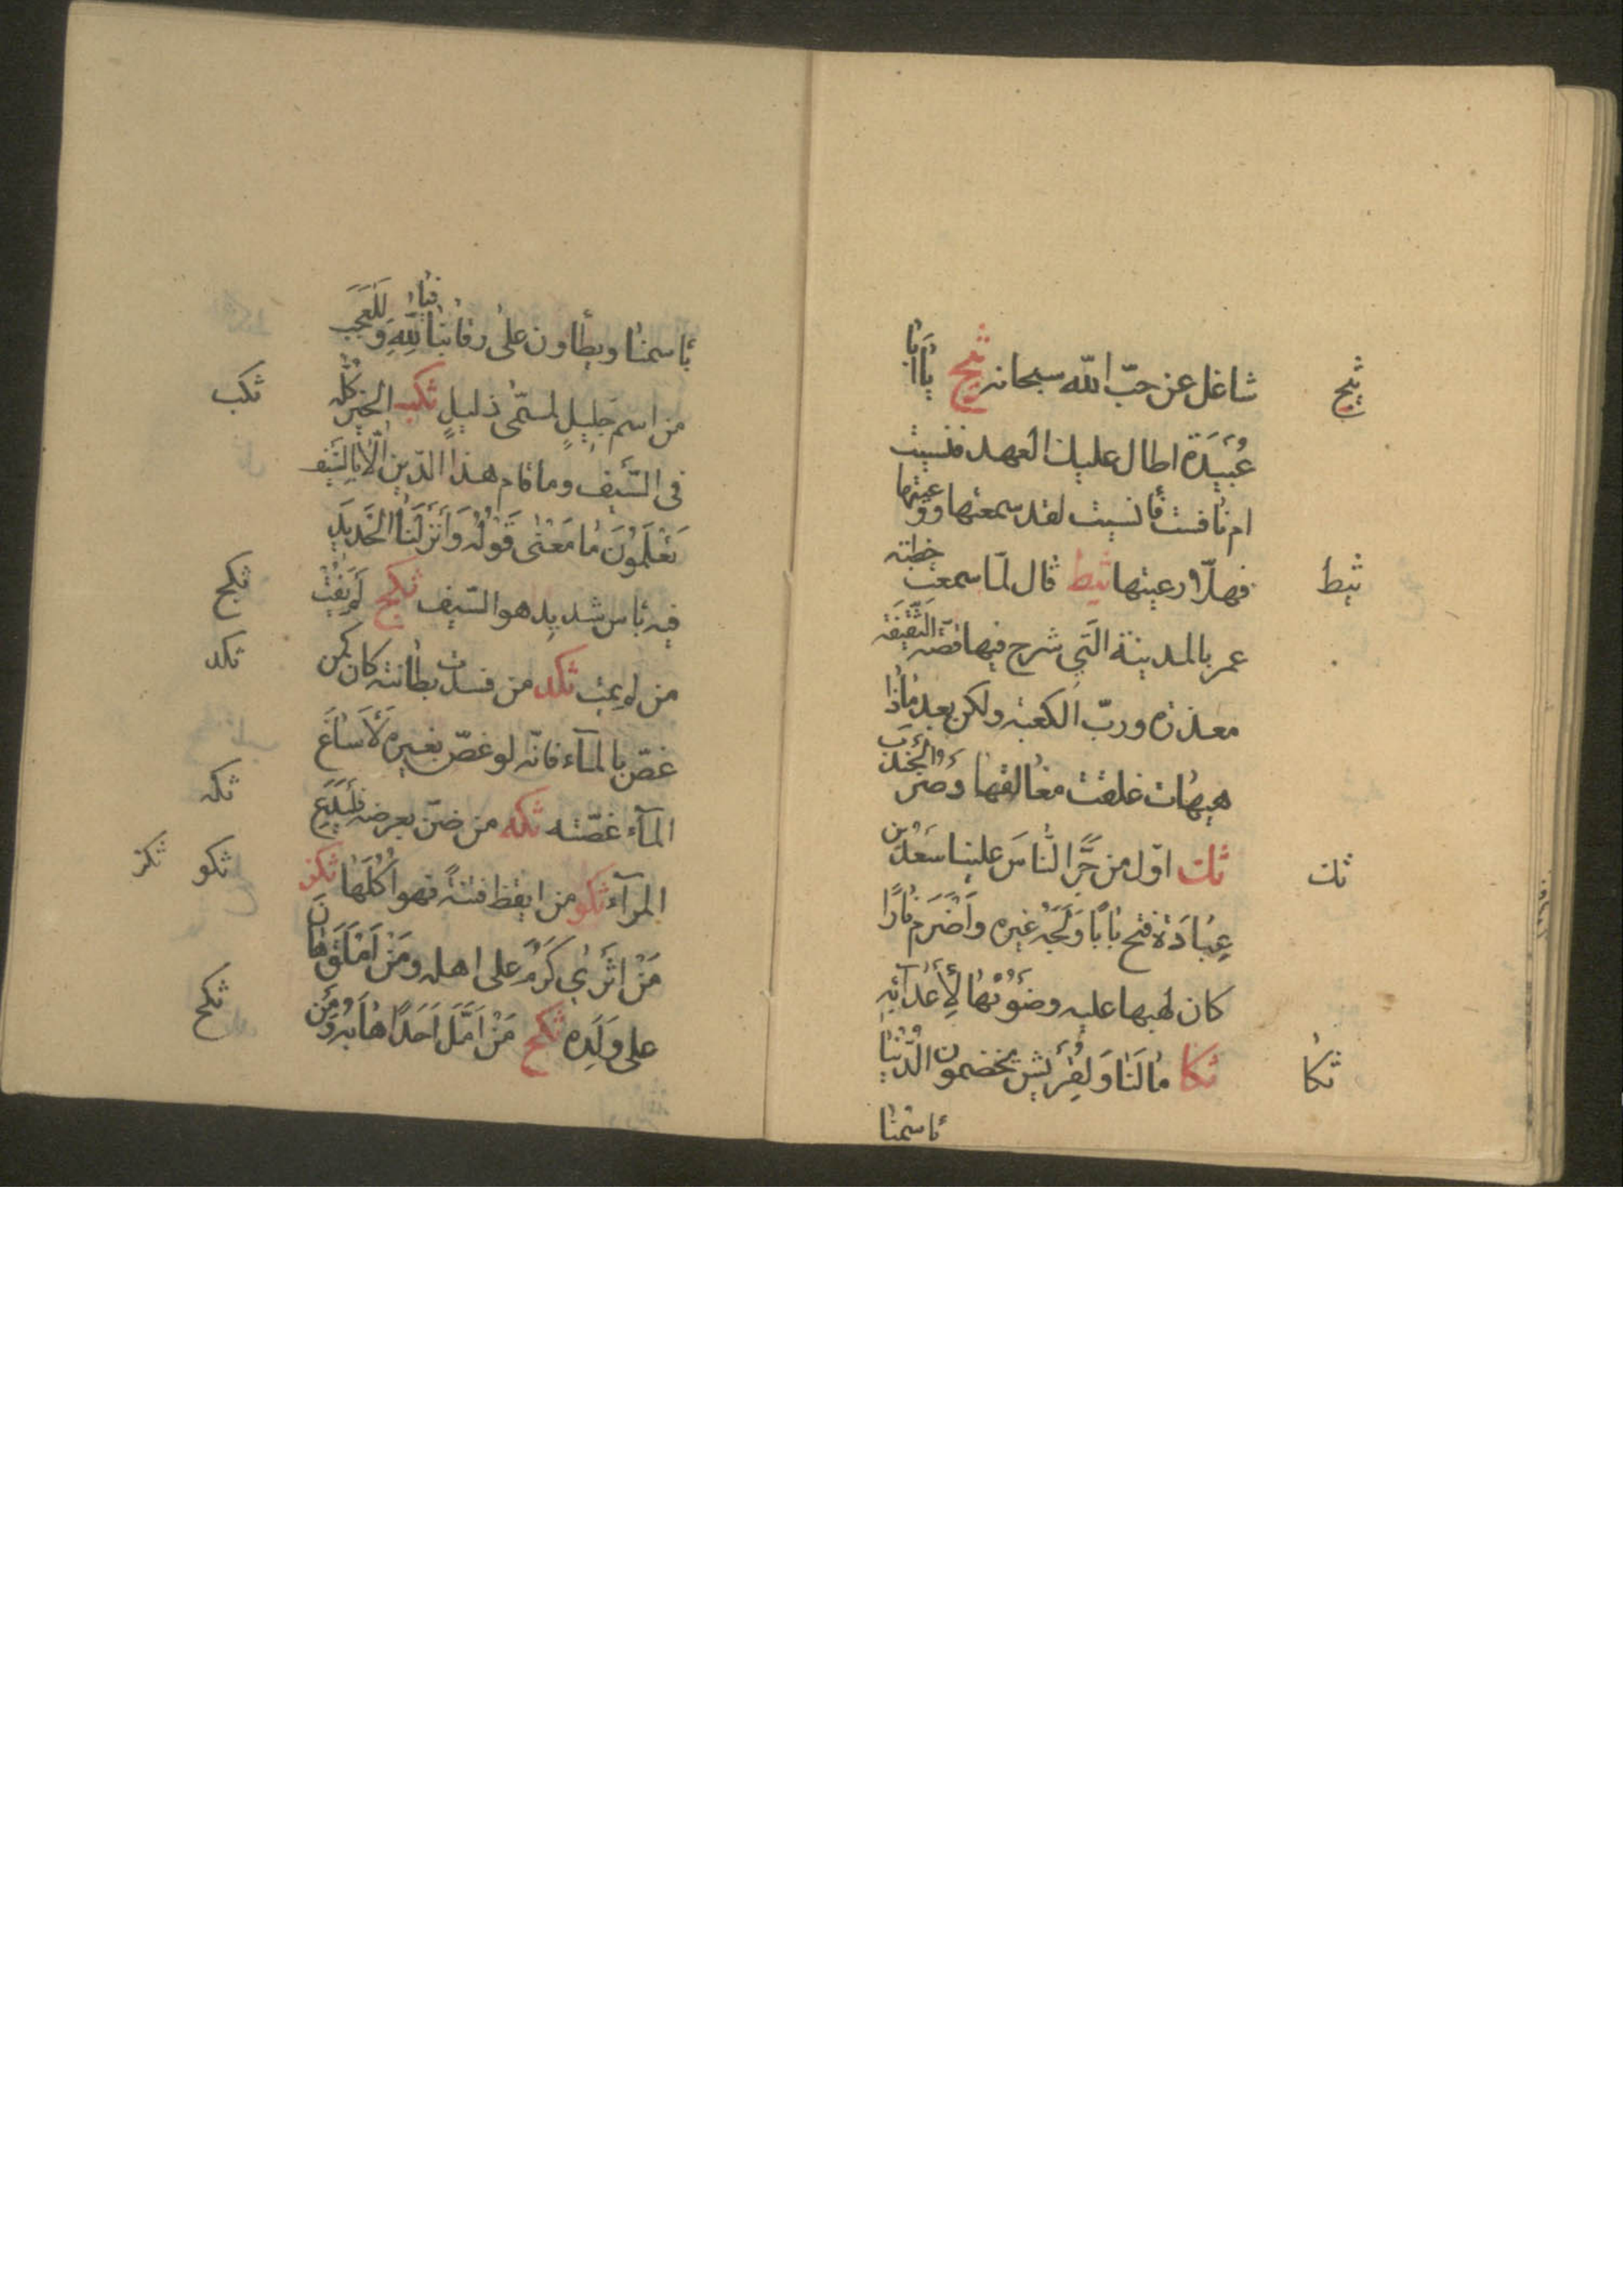 شاغل عن حبّ الله سبحانه ثيح يا ابا
ثيح
عُبَيْدَة اطال عليك العهد فنسيت
ام نافست فأنسيت لقد سمعتها ووعيتها
فهلّا رعيتها ثيط قال لمّا سمعت خطبته
ثيط
عمر بالمدينة الّتي شرح فيها قصّة السّقيفة
معذرة وربّ الكعبة ولكن بعد ماذا
هيهات غلقت مغالقها وصرّ الجندب
ثك اوّل من جرّأ النّاسَ علينا سعد بن
ثك
عبادة فتح بابًا ولجه غيره واضرم نارًا
كان لهبها عليه وضوئها لأعدائه
ثكا مالنا ولقريش يخضمون الدّنيا
ثكا
باسمنا
باسمنا ويطأون على رقابنا فيا لله وللعجب
من اسم جليل لمسمّى ذليل ثكب الخير كلّه
ثكب
في السّيف وما قام هذا الدّين الّا بالسّيف
تعلمون ما معنى قوله وانزلنا الحديد
فيه بأس شديد هو السّيف ثكج لم يفت
ثكج
من لم يمت ثكد من فسدت بطانته كان كمن
ثكد
غصّ بالمآء فانّه لو غصّ بغيره لأساغ
المآء غصّته ثكه من ضنّ بعرضه فليدع
ثكه
المرآء ثكو من ايقظ فتنةً فهو اكلها ثكز
ثكو ثكز
مَنْ اثرى كرم على اهله ومن املق هان
على ولده ثكح مَنْ امّل احدًا هابه ومن
ثكح